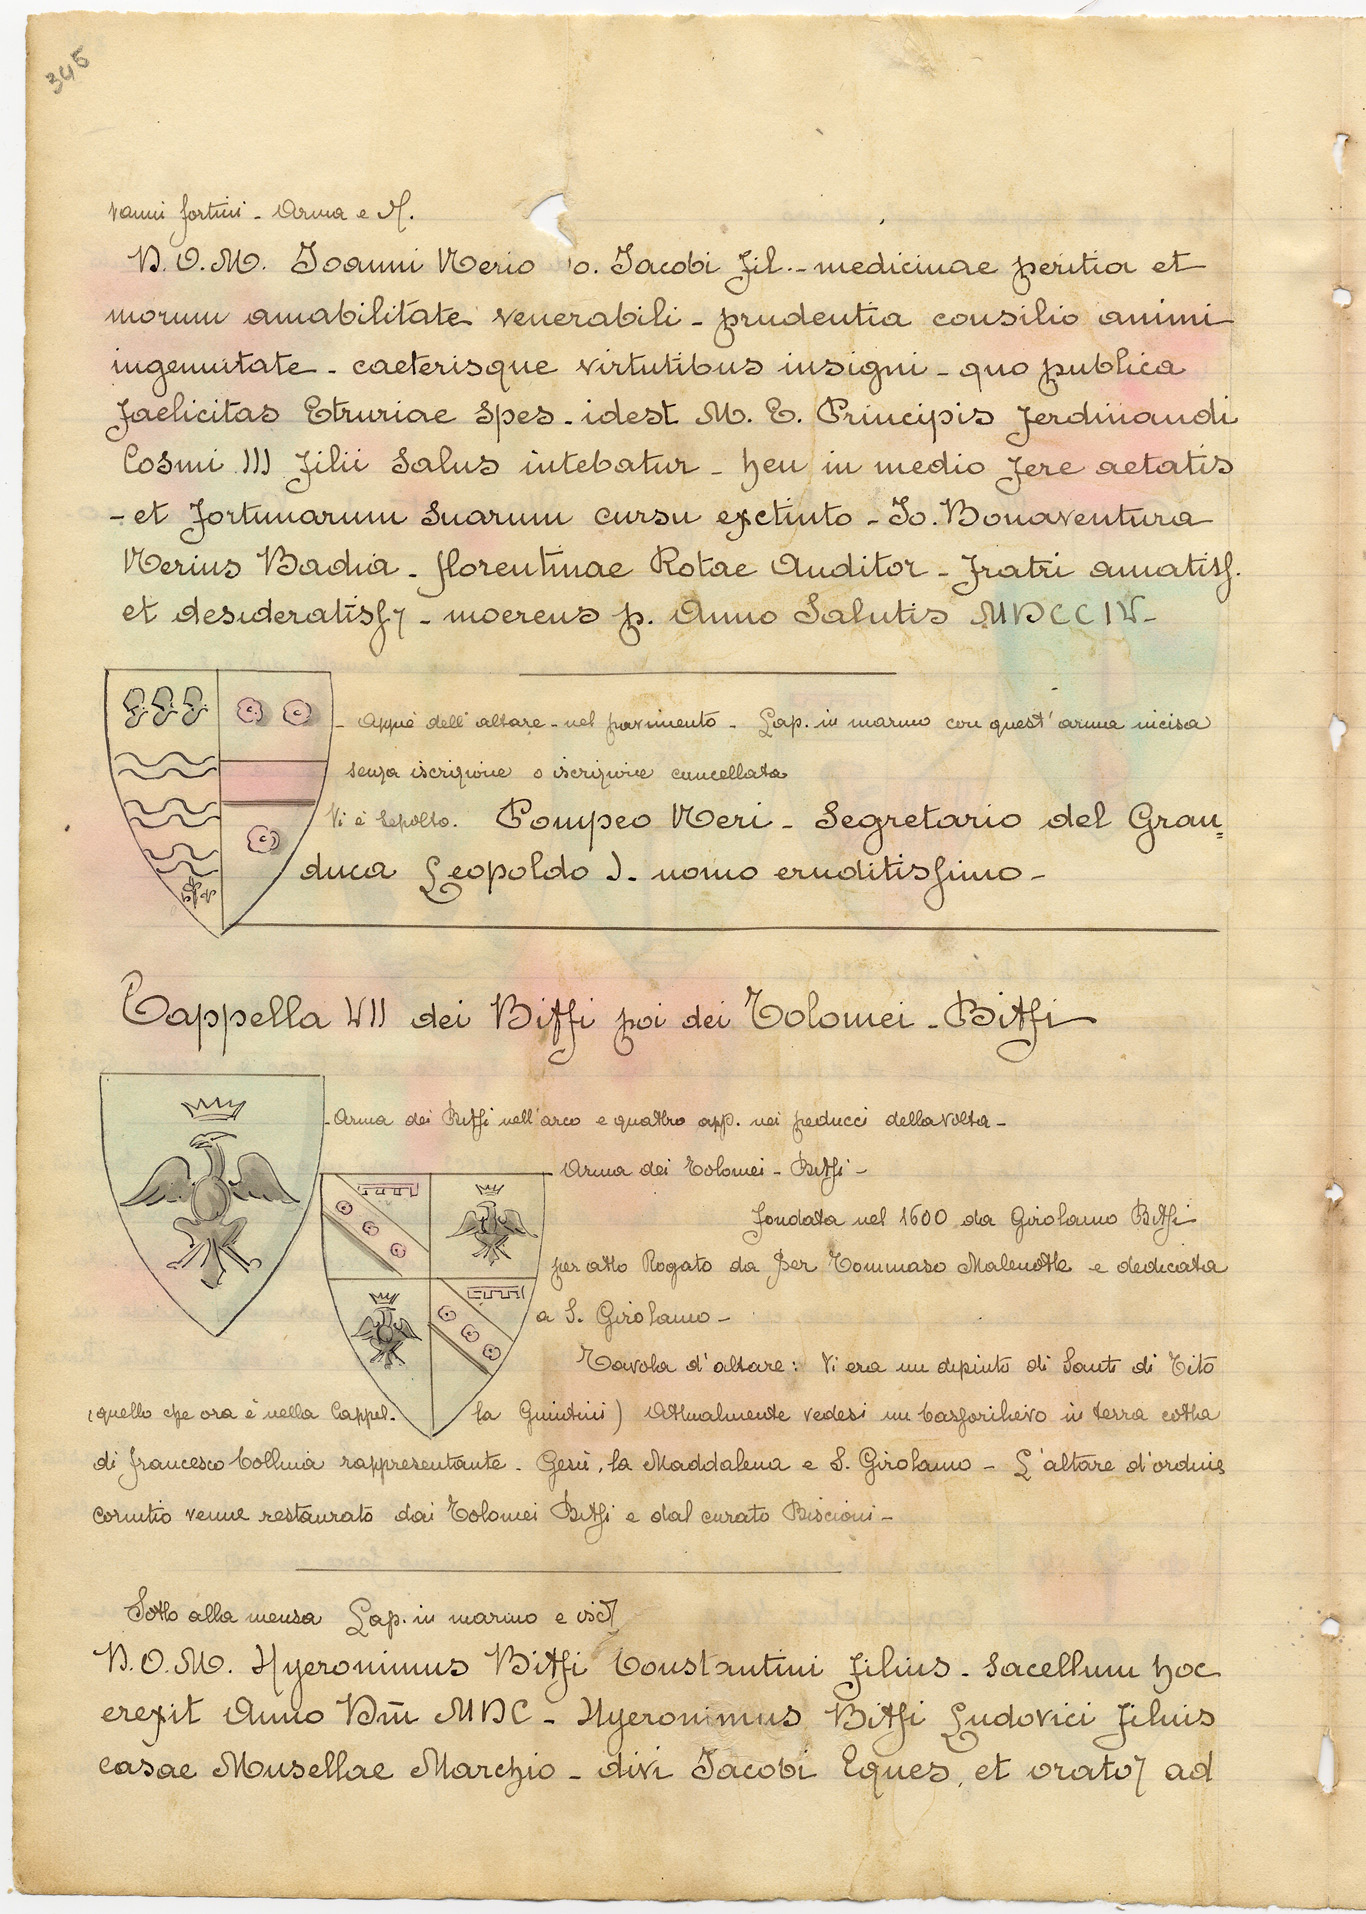 345
vanni fortini - Arma e M.
D. O. M. Joanni Nerio o. Jacobi fil. - medicinae peritia et
morum amabilitate venerabili - prudentia consilio animi
ingenuitate - caeterisque virtutibus insigni - quo publica
faelicitas Etruriae spes - idest M. E. Principis ferdinandi
Cosmi III filii salus intebatur - heu in medio fere aetatis
- et fortunarum suarum cursu exctinto - Jo. Bonaventura
Nerius Badia - florentinae Rotae Auditor - fratri amatiss.
et desideratiss - moerens p. Anno Salutis MDCCIV -
- Appiè dell'altare - nel pavimento - Lap. in marmo con quest'arma incisa
senza iscrizione o iscrizione cancellata
Vi è sepolto. Pompeo Neri - Segretario del Gran=
duca Leopoldo I. uomo eruditissimo -
Cappella VII dei Biffi poi dei Tolomei - Biffi
- Arma dei Biffi nell'arco e quattro app. nei peducci della volta -
Arma dei Tolomei - Biffi -
fondata nel 1600 da Girolamo Biffi
per atto Rogato da Ser Tommaso Malenotte e dedicata
a S. Girolamo -
Tavola d'altare: Vi era un dipinto di Santi di Tito
(quello che ora è nella Cappel. la Guintini) Attualmente vedesi un bassorilievo in terra cotta
di francesco Collina rappresentante - Gesù, la Maddalena e S. Girolamo - L'altare d'ordine
corintio venne restaurato dai Tolomei Biffi e dal curato Biscioni -
Sotto alla mensa Lap. in marmo e iscr
D. O. M. Hyeronimus Biffi Constantini filius - sacellum hoc
erexit Anno Dni MDC - Hyeronimus Biffi Ludovici filius
casae Musellae Marchio - divi Jacobi Eques, et orator ad